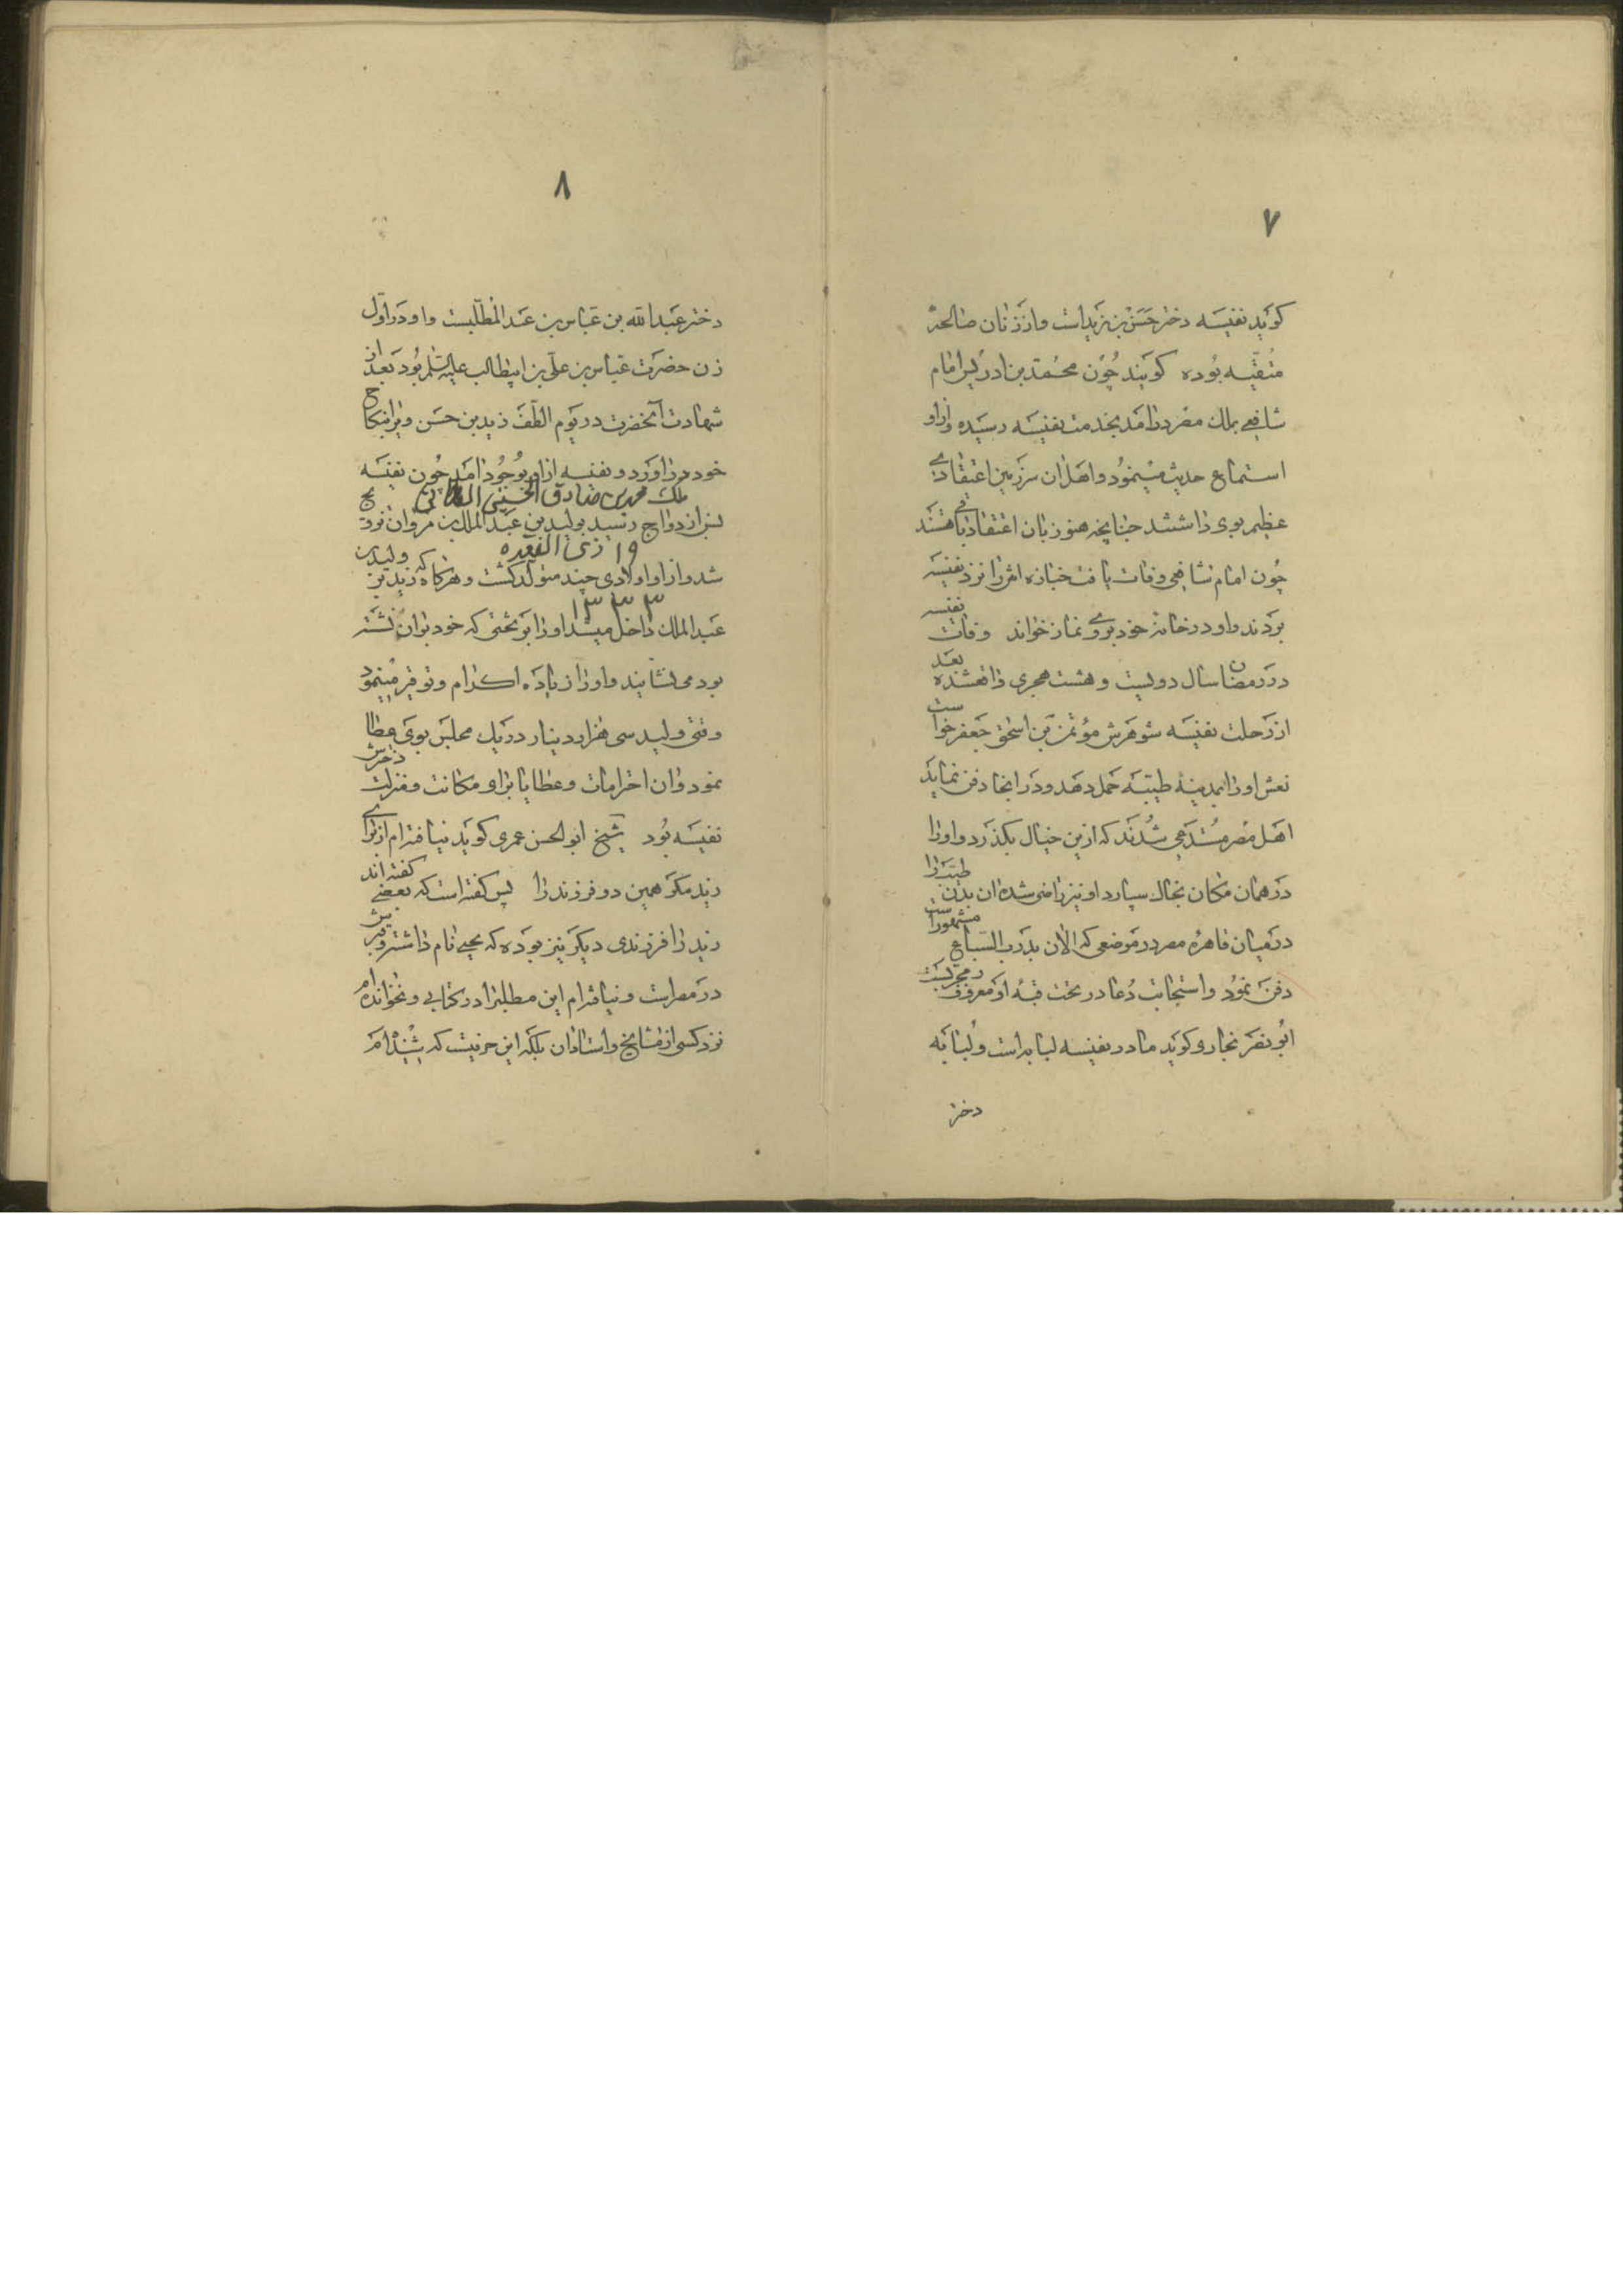 ۷
کوید نفیسه دختر حسن بن زید است و از زنان صالحه
متقیه بوده کویند چون محمد بن ادریس امام
شافعی بملک مصر درامد بخدمت نفیسه رسیده و از او
استماع حدیث مینمود و اهل ان سرزمین اعتقادی
عظیم بوی داشتند چنانچه هنوز بان اعتقاد باقی هستند
چون امام شافعی وفات یافت جنازه اش را نزد نفیسه
بردند و او در خانه خود بروی نماز خواند وفات نفیسه
در رمضان سال دویست و هشت هجری واقعشده بعد
از رحلت نفیسه شوهرش مؤتمن بن اسحق جعفر خواست
نعش او را بمدینهٔ طیبه حمل دهد و در انجا دفن نماید
اهل مصر مستدعی شدند که ازین خیال بکذرد و او را
در همان مکان بخاک سپارد او نیز راضی شده ان بدن طیب را
در میان قاهرهٔ مصر در موضعی که الان بدرب السباع مشهور است
دفن نمود و استجابت دعا در تحت قبهٔ او معروف و مجربست
ابو نصر بخاری کوید مادر نفیسه لبابه است و لبابه
دختر
۸
دختر عبدالله بن عباس بن عبدالمطلبست و او در اول
زن حضرت عباس بن علی بن ابیطالب علیه السلم بود بعد از
شهادت آنحضرت در یوم الطف زید بن حسن ویرا بنکاح
خود در اورد و نفیسه از او بوجود امد چون نفیسه
ملک محمد بن صادق الحسینی
بسن ازدواج رسید بولید بن عبدالملک بن مروان تزویج
۱۹ ذی القعده
شد و از او اولادی چند متولد کشت و هرکاه که زید بن ولید بن
۱۳۳۳
عبدالملک داخل میشد او را بر تختی که خود بران نشسته
بود می نشانید و او را زیاده اکرام و توقیر مینمود
وقتی ولید سی هزار دینار در یک مجلس بوی عطا
نمود و ان احترامات و عطایا برای مکانت و منزلت دخترش
نفیسه بود شیخ ابوالحسن عمری کوید نیافته ام از برای
زید مکر همین دو فرزند را پس کفته است که بعضی کفته اند
زید را فرزندی دیکر نیز بوده که یحیی نام داشته و قبرش
در مصر است و نیافته ام این مطلب را در کتابی و نخوانده ام
نزد کسی از مشایخ و استادان بلکه این حرفیست که شنیده ام